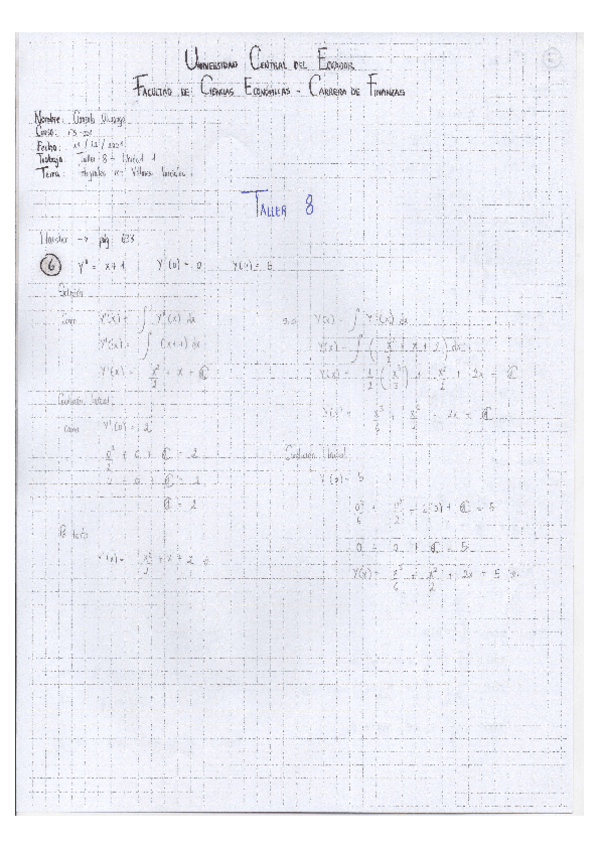 UNIVERSIDAD CENTRAL DEL ECUADOR
FACULTAD DE CIENCIAS ECONÓMICAS - CARRERA DE FINANZAS
Nombre:
Curso:
Fecha:
Trabajo: Taller 8 - Unidad 1
Tema: Valores Iniciales
TALLER 8
Haeussler -> pág
6 y'' = x + 1 y'(0) = 0 y(0) = 5
Solución
y'(x) = ∫ y''(x) dx
y'(x) = ∫ (x+1) dx
y'(x) = x²/2 + x + C
Condición Inicial
como y'(0) = 2
0²/2 + 0 + C = 2
C = 2
Por tanto
y'(x) = x²/2 + x + 2
y(x) = ∫ y'(x) dx
y(x) = ∫ (x²/2 + x + 2) dx
y(x) = 1/2 (x³/3) + x²/2 + 2x + C
y(x) = x³/6 + x²/2 + 2x + C
Condición Inicial
y(0) = 5
0³/6 + 0²/2 + 2(0) + C = 5
0 + 0 + C = 5
y(x) = x³/6 + x²/2 + 2x + 5